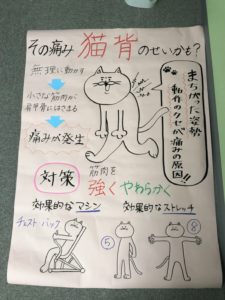 その痛み 猫背のせいかも?
無理に動かす
小さな筋肉が
肩甲骨にはさまる
痛みが発生
まちがった姿勢
動作のクセが痛みの原因!!
対策
筋肉を
強くやわらかく
効果的なマシン
効果的なストレッチ
チェストバック
⑤
⑧